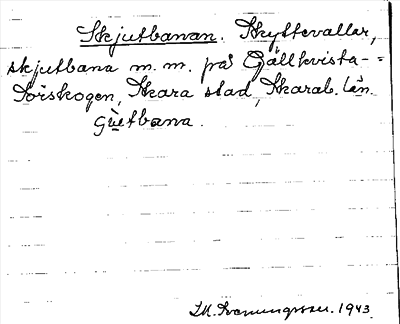 Skjutbanan. Skyttevallar,
skjutbana m.m. på Gällkvista-=
Torskogen, Skara stad, Skarab. län.
Guetbana.
1943.